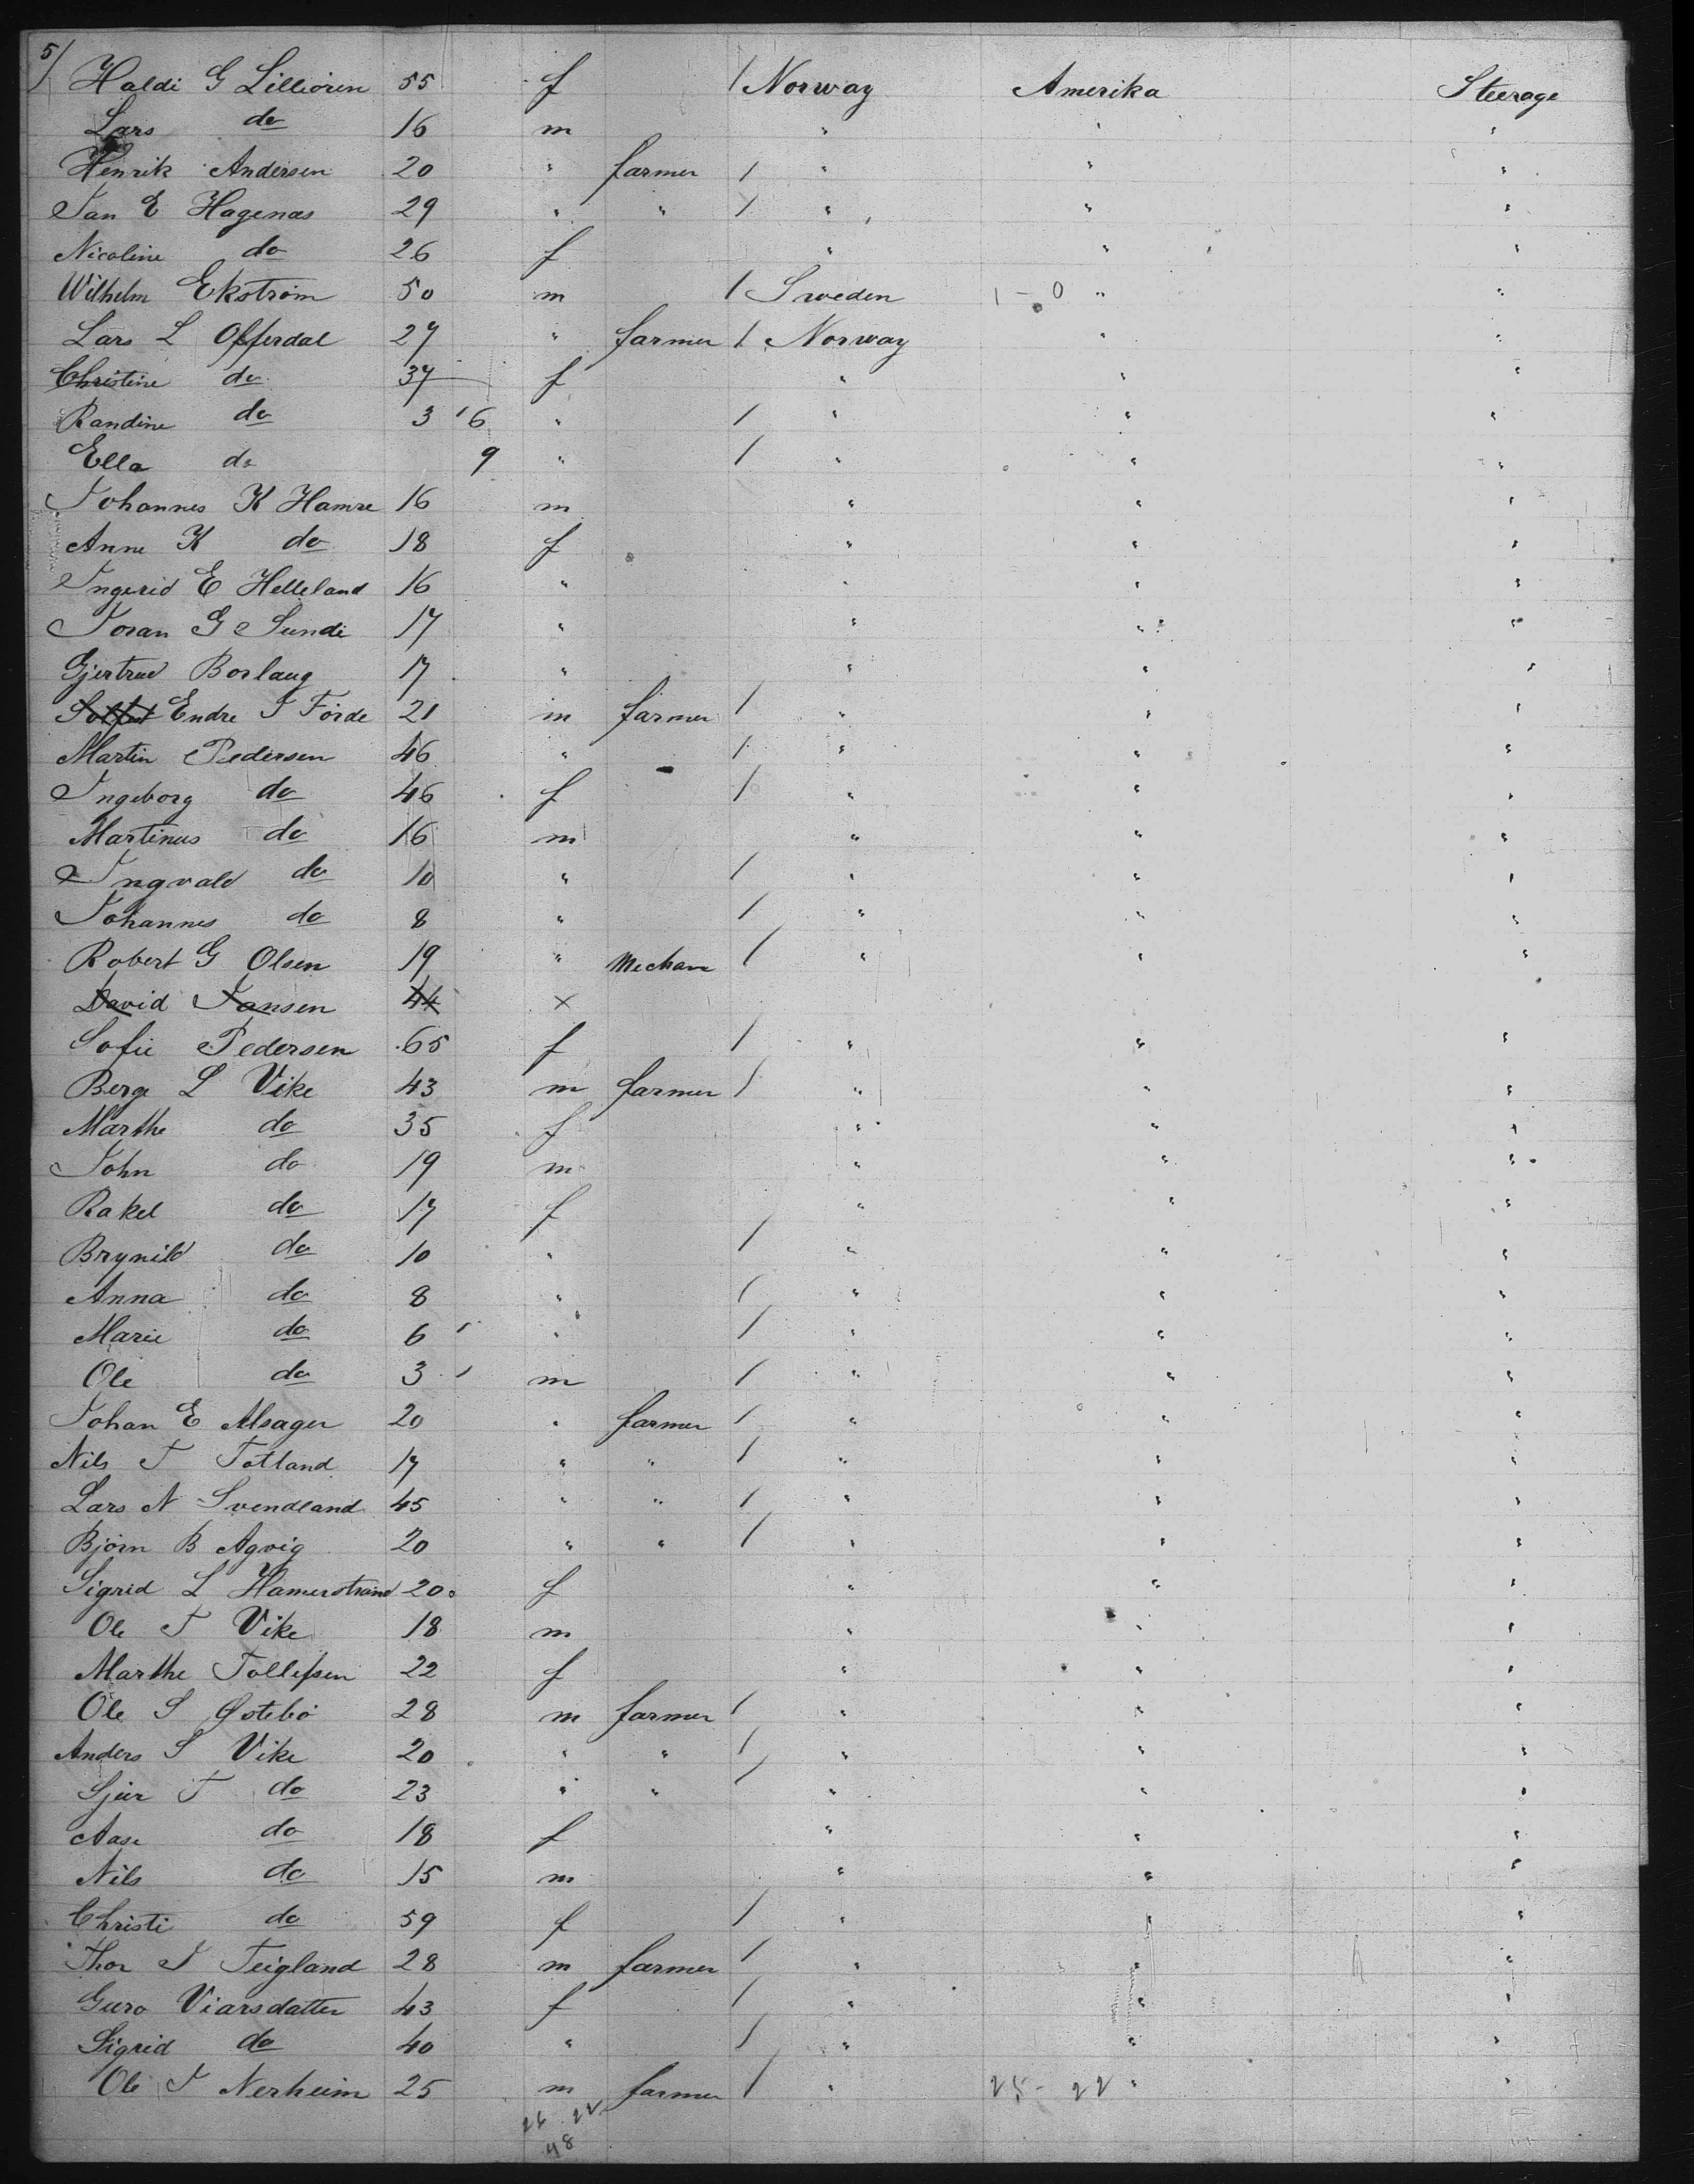 5/
Haldi G Lilliören 55 f / Norway Amerika Steerage
Lars do 16 m " " "
Henrik Andersen 20 " farmer / " " "
Jan E Hagenas 29 " " / " " "
Nicoline do 26 f " " "
Wilhelm Ekström 50 m / Sweden 1 - 0 " "
Lars L Offerdal 27 " farmer / Norway " "
Christine do 37 f " " "
Randine do 3 ' 6 " / " " "
Ella do 9 " / " " "
Johannes K Hamre 16 m " " "
Anne K do 18 f " " "
Ingerid E Helleland 16 " " " "
Joran G Sundi 17 " " " "
Gjertrud Borlaug 17 " " " "
Endre T Förde 21 m farmer / " " "
Martin Pedersen 46 " / " " "
Ingeborg do 46 f / " " "
Martinus do 16 m " " "
Ingvald do 10 " / " " "
Johannes do 8 " / " " "
Robert G Olsen 19 " Mechan / " " "
David Jansen 44 x
Sofie Pedersen 65 f / " " "
Berge L Vike 43 m farmer / " " "
Marthe do 35 f " " "
John do 19 m " " "
Rakel do 17 f " " "
Brynild do 10 " / " " "
Anna do 8 " / " " "
Marie do 6 ' " / " " "
Ole do 3 ' m / " " "
Johan E Alsager 20 " farmer / " " "
Nils T Totland 17 " " / " " "
Lars N Svendland 45 " " / " " "
Bjorn B Agvig 20 " " / " " "
Sigrid L Hamerstrand 20 f " " "
Ole T Vike 18 m " " "
Marthe Tollefsen 22 f " " "
Ole S Østebö 28 m farmer / " " "
Anders S Vike 20 " " / " " "
Sjur T do 23 " " / " " "
Aase do 18 f " " "
Nils do 15 m " " "
Christi do 59 f / " " "
Thor T Teigland 28 m farmer / " " "
Guro Viarsdatter 43 f / " " "
Sigrid do 40 " / " " "
Ole T Nerheim 25 m farmer / " 25 - 22 " "
26 22
48